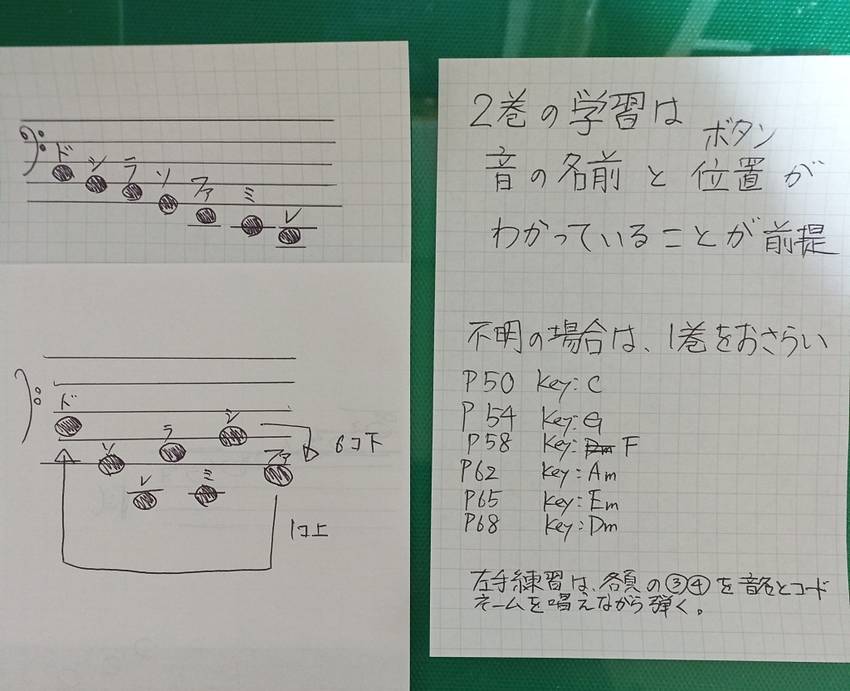 ド シ ラ ソ ファ ミ レ
ド ソ レ ラ ミ シ ファ
6コ下
1コ上
2巻の学習は
ボタン
音の名前と位置が
わかっていることが前提
不明の場合は、1巻をおさらい
P50 Key:C
P54 Key:G
P58 Key:Dm F
P62 Key:Am
P65 Key:Em
P68 Key:Dm
左手練習は、各頁の③④を音名とコード
ネームを唱えながら弾く。